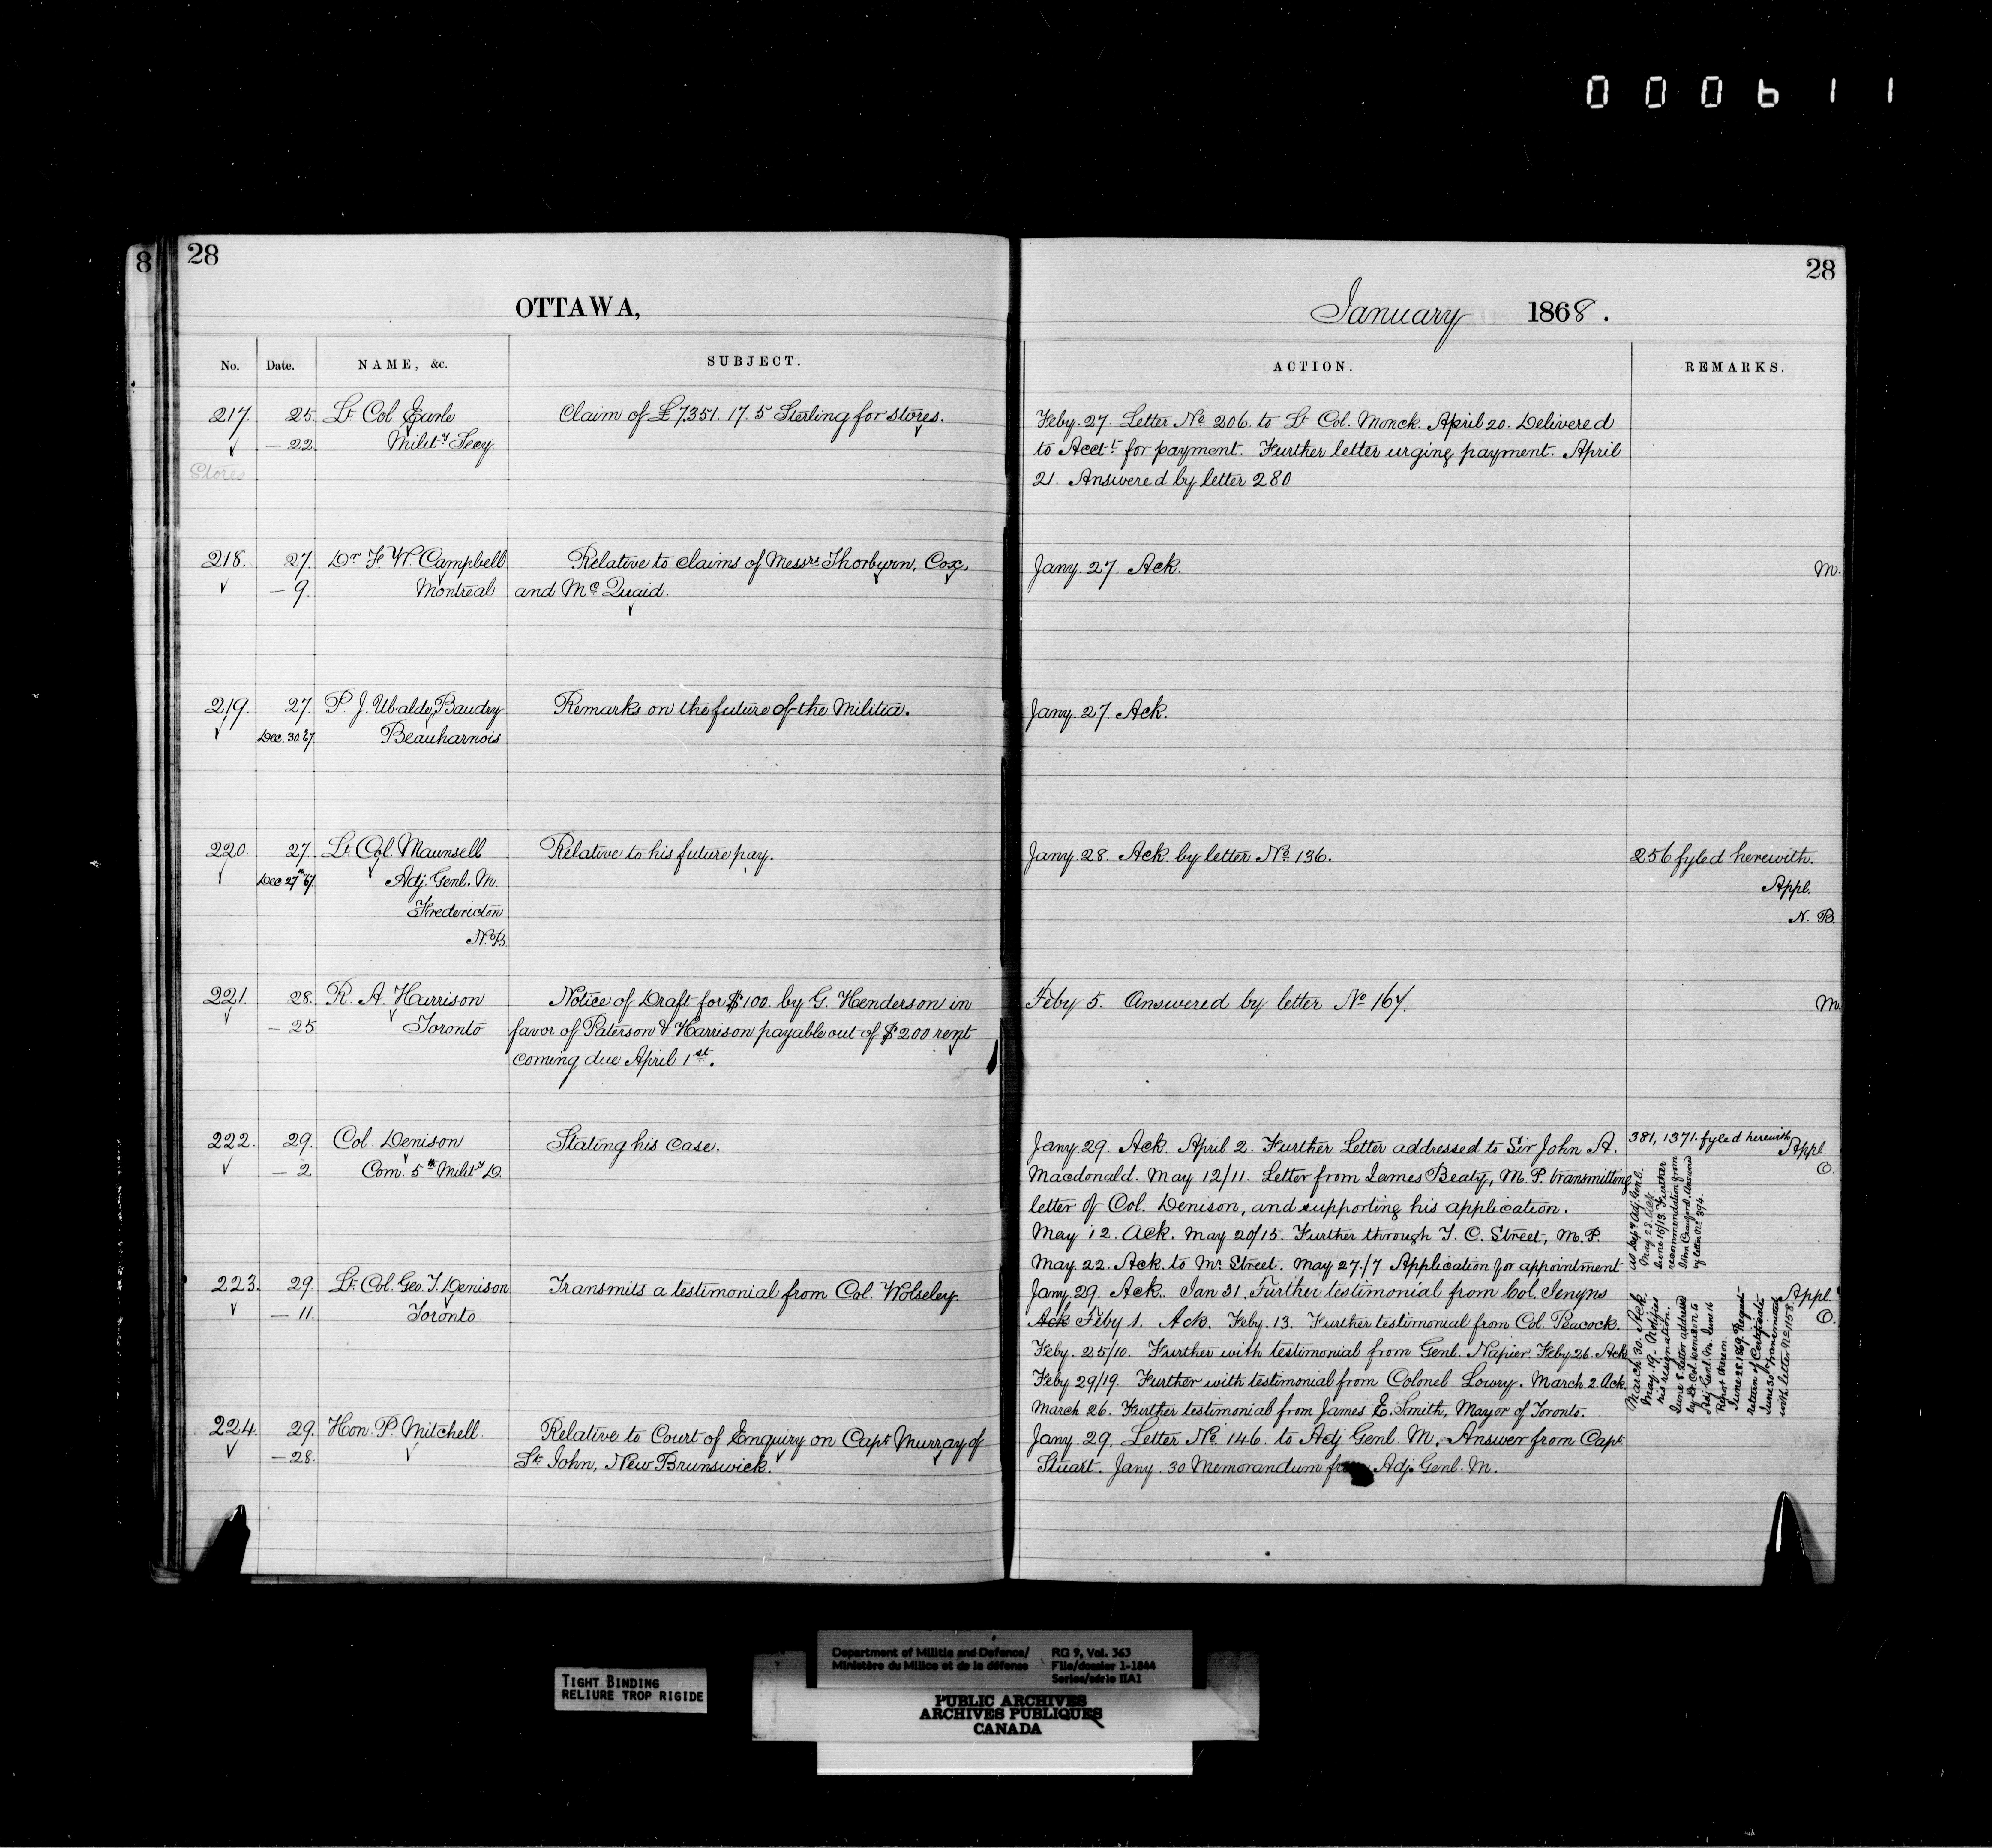 000611
8 28
28
OTTAWA,
January 1868.
No. Date. NAME, &c. SUBJECT.
ACTION. REMARKS.
217. 25. Lt Col. Earle Claim of £7351. 17. 5 Sterling for stores.
— 22. Mility Secy.
Stores
Feby. 27. Letter No 206. to Lt Col. Monck. April 20. Delivered
to Acctt for payment. Further letter urging payment. April
21. Answered by letter 280
218. 27. Dr F W. Campbell Relative to claims of Messrs Thorburn, Cox,
— 9. Montreal and Mc Quaid.
Jany. 27. Ack. M.
219. 27. P J. Ubalde Baudry Remarks on the future of the Militia.
Dec. 30. 67. Beauharnois
Jany. 27 Ack.
220. 27. Lt Col Maunsell Relative to his future pay.
Dec 27th 67. Adj. Genl. M.
Fredericton
N.B.
Jany 28. Ack by letter No 136. 256 fyled herewith.
Appl.
N. B.
221. 28. R. A. Harrison Notice of Draft for $100. by G. Henderson in
— 25 Toronto favor of Paterson & Harrison payable out of $200 rent
coming due April 1st.
Feby 5. Answered by letter No 167. M.
222. 29. Col. Denison Stating his case.
— 2. Com. 5th Mility D.
Jany. 29. Ack. April 2. Further Letter addressed to Sir John A.
Macdonald. May 12/11. Letter from James Beaty, M. P. transmitting
letter of Col. Denison, and supporting his application.
May 12. Ack. May 20/15. Further through T. C. Street, M. P.
May 22. Ack. to Mr Street. May 27./7 Application for appointment
381, 1371. fyled herewith Appl
O.
as Depy Adj. Genl.
May 28. Ack.
June 15/13. Further
recommendation from
John Crawford. Answered
by letter No 394.
223. 29. Lt Col. Geo. T. Denison Transmits a testimonial from Col. Wolseley.
— 11. Toronto.
Jany. 29. Ack. Jan 31. Further testimonial from Col. Jenyns
Ack Feby 1. Ack. Feby. 13. Further testimonial from Col. Peacock.
Feby. 25/10. Further with testimonial from Genl. Napier. Feby. 26. Ack
Feby 29/19. Further with testimonial from Colonel Lowry. March 2. Ack.
March 26. Further testimonial from James E. Smith, Mayor of Toronto.
Appl.
O.
March 30. Ack.
May. 19 - Notifies
his resignation.
June 8. Letter addressed
by Lt Col. Denison to
Adj Genl. M. June 16
Report thereon.
June 28. 1869. Request
return of Certificates
June 30 Transmitted
with letter No 1158.
224. 29. Hon. P. Mitchell. Relative to Court of Enquiry on Capt Murray of
— 28. St John, New Brunswick.
Jany. 29. Letter No 146. to Adj Genl M. Answer from Capt
Stuart. Jany. 30 Memorandum from Adj. Genl. M.
TIGHT BINDING
RELIURE TROP RIGIDE
Department of Militia and Defence/ RG 9, Vol. 363
Ministère du Milice et de la défense File/dossier 1-1844
Series/série IIA1
PUBLIC ARCHIVES
ARCHIVES PUBLIQUES
CANADA